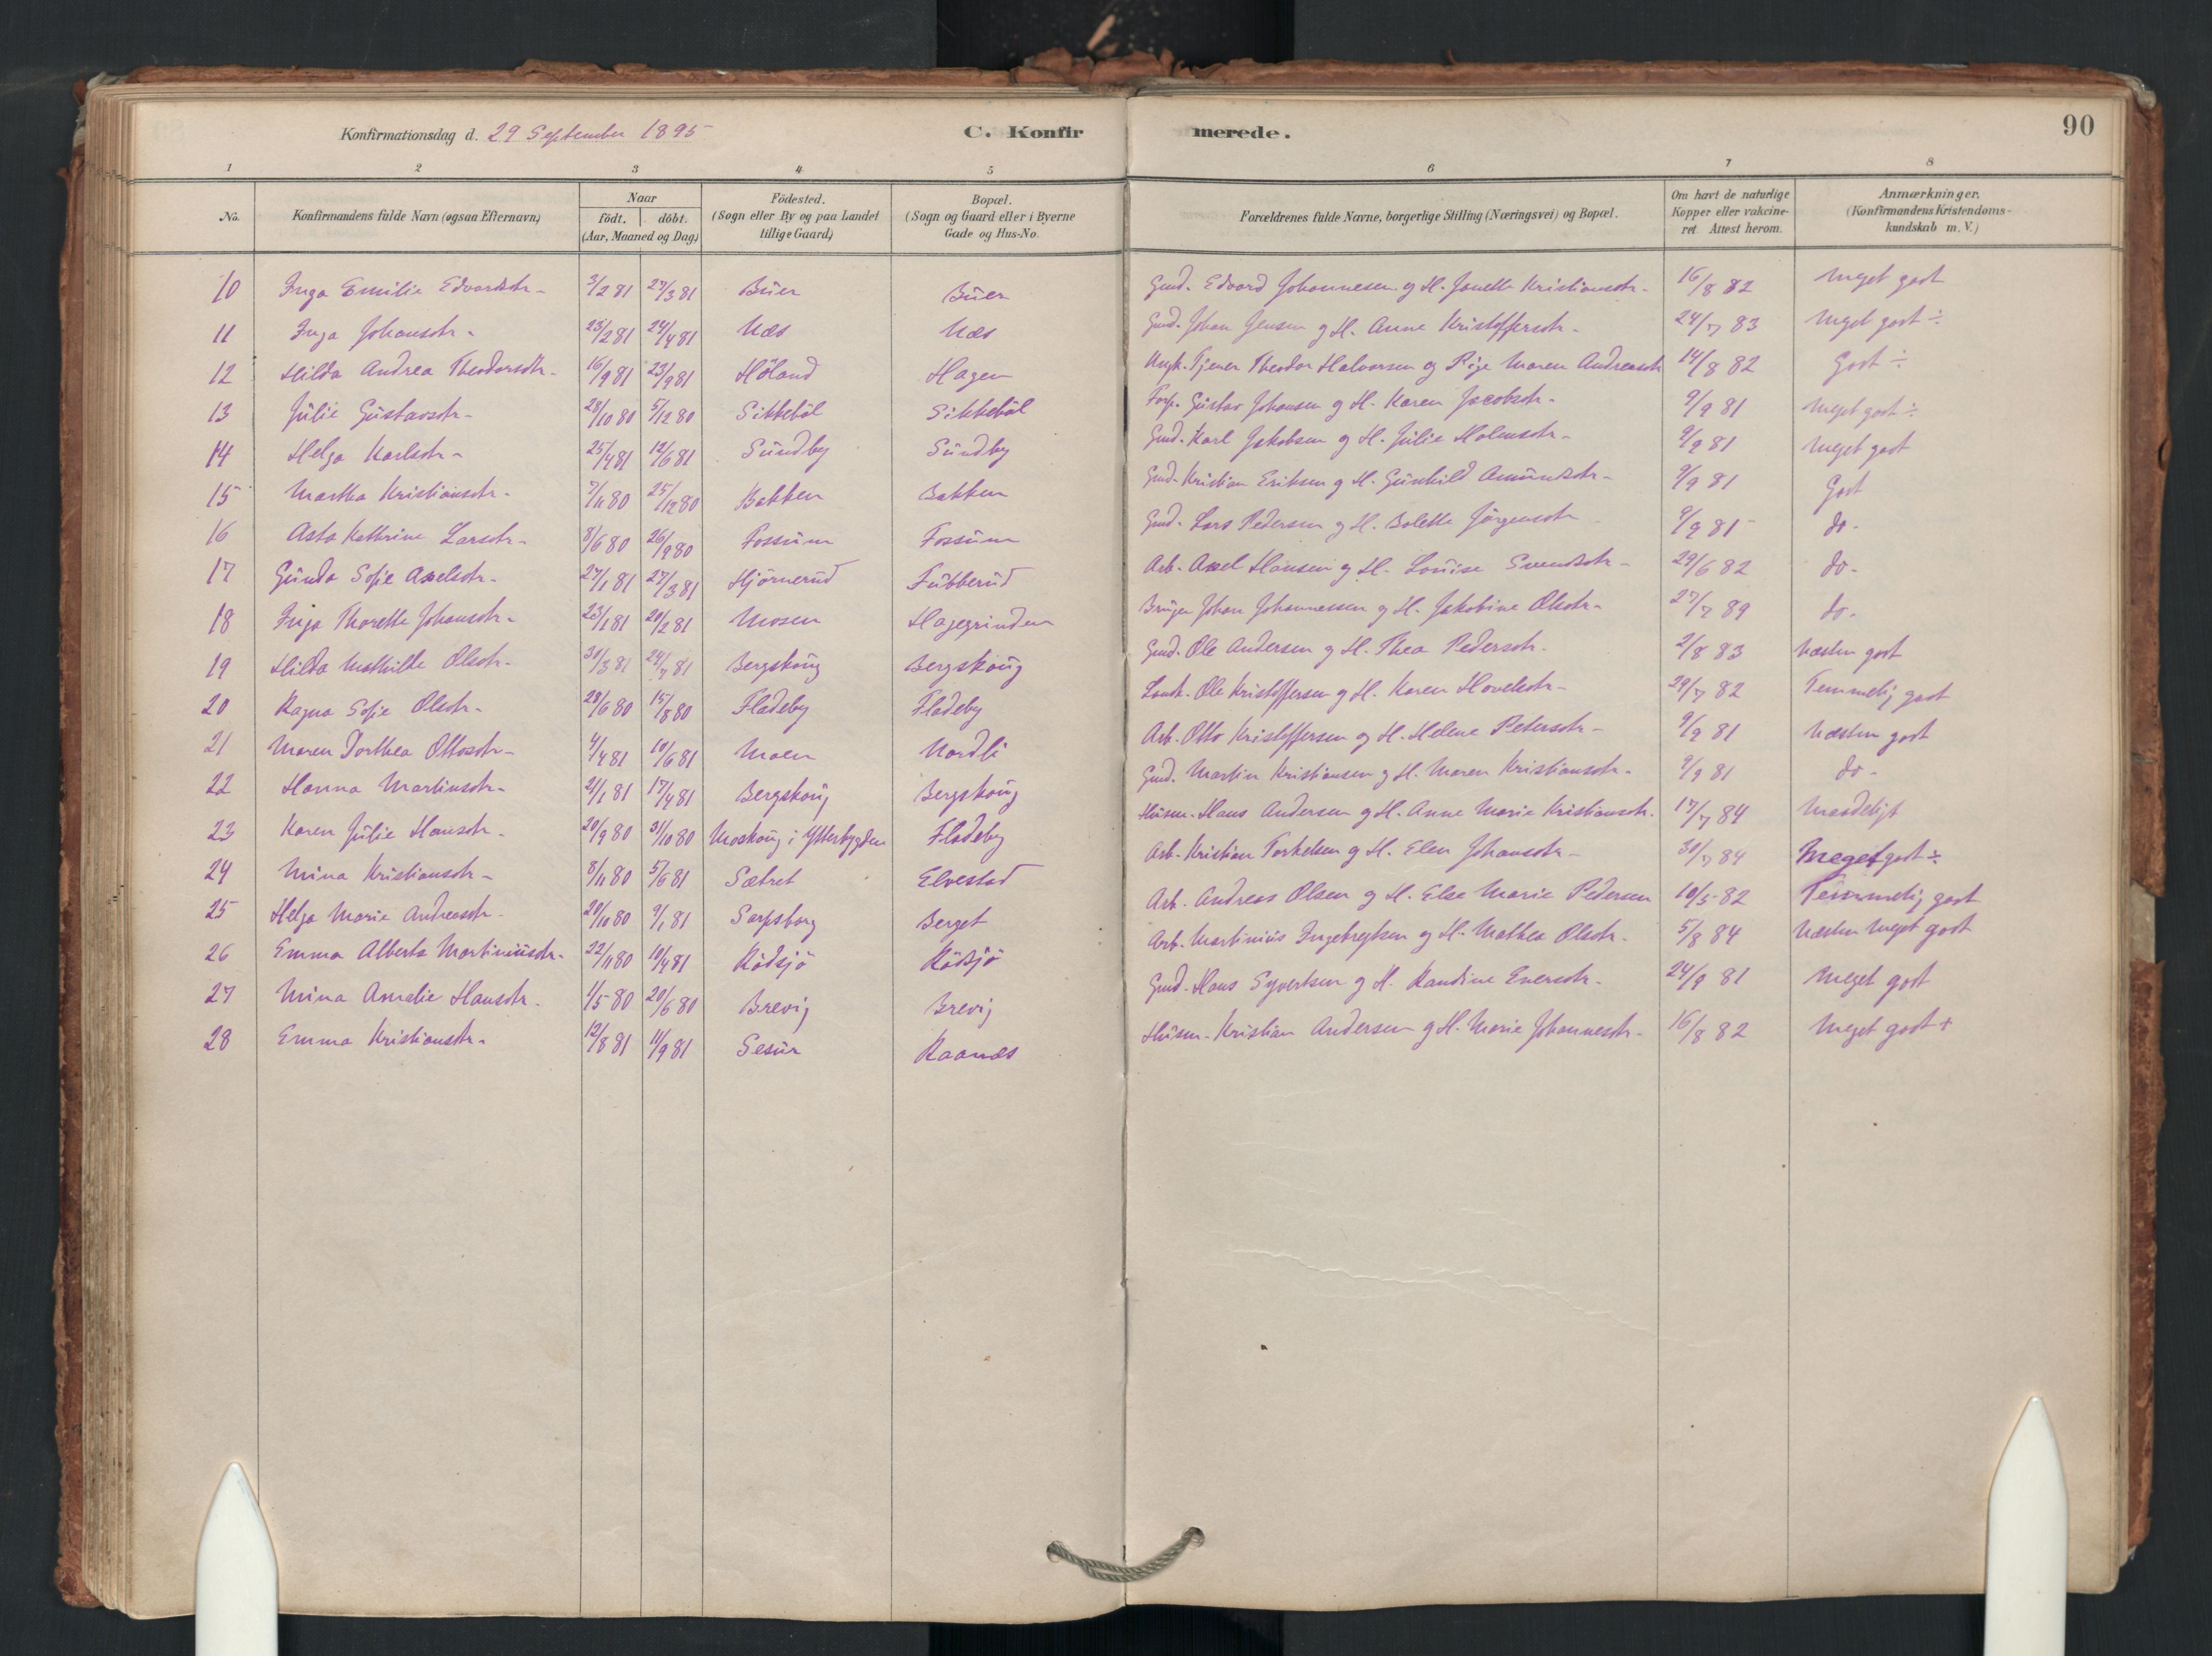 Konfirmationsdag d. 29 September 1895 C. Konfirmerede. 90
1 2 3 4 5 6 7 8
No. Konfirmandens fulde Navn (ogsaa Efternavn) Naar födt. döbt. (Aar, Maaned og Dag) Födested. (Sogn eller By og paa Landet tillige Gaard) Bopæl. (Sogn og Gaard eller i Byerne Gade og Hus-No. Forældrenes fulde Navne, borgerlige Stilling (Næringsvei) og Bopæl. Om havt de naturlige Kopper eller vakcineret Attest herom. Anmærkninger. (Konfirmandens Kristendomskundskab m. V.)
10 Inga Emilie Edvardsdtr- 3/2 81 27/3 81 Buer Buer Gmd. Edvard Johannesen og H. Janette Kristiansdtr- 16/8 82 Meget godt
11 Inga Johansdtr- 23/2 81 24/4 81 Næs Næs Gmd. Johan Jensen og H. Anne Kristoffersdtr- 24/7 83 Meget godt ÷
12 Hilda Andrea Theodorsdtr- 16/9 81 23/9 81 Höland Hagen Ungk. Tjener Theodor Halvorsen og Pige Maren Andreasdtr 14/8 82 Godt ÷
13 Julie Gustavsdtr- 28/10 80 5/12 80 Sikkeböl Sikkeböl Forp. Gustav Johansen og H. Karen Jacobsdtr- 9/9 81 Meget godt ÷
14 Helga Karlsdtr- 25/4 81 12/6 81 Sundby Sundby Gmd. Karl Jakobsen og H. Julie Holmsdtr- 9/9 81 Meget godt
15 Martha Kristiansdtr- 7/11 80 25/12 80 Bakken Bakken Gmd. Kristian Eriksen og H. Gunhild Amundsdtr- 9/9 81 Godt
16 Asta Kathrine Larsdtr- 8/6 80 26/9 80 Fossum Fossum Gmd. Lars Pedersen og H. Bolette Jörgensdtr 9/9 81 do-
17 Gunda Sofie Axelsdtr- 27/1 81 27/3 81 Hjörnerud Fubberud Arb. Axel Hansen og H. Louise Svendsdtr- 29/6 82 do-
18 Inga Thorette Johansdtr- 23/1 81 20/2 81 Mosen Hagegrinden Bruger Johan Johannessen og H. Jakobine Olsdtr- 27/7 89 do-
19 Hilda Mathilde Olsdtr- 30/3 81 24/7 81 Bergskoug Bergskoug Gmd. Ole Andersen og H. Thea Pedersdtr- 2/8 83 Næsten godt
20 Ragna Sofie Olsdtr- 28/6 80 15/8 80 Fladeby Fladeby Ole Kristoffersen og H. Karen Hovelsdtr- 29/7 82 Temmelig godt
21 Maren Dorthea Ottosdtr- 4/4 81 10/6 81 Moen Nordli Arb. Otto Kristoffersen og H. Helene Petersdtr- 9/9 81 Næsten godt
22 Hanna Martinsdtr- 21/1 81 17/4 81 Bergskoug Bergskoug Gmd. Martin Kristiansen og H. Maren Kristiansdtr- 9/9 81 do-
23 Karen Julie Hansdtr- 20/9 80 31/10 80 Moskoug i Ytterbygden Fladeby Husm. Hans Andersen og H. Anne Marie Kristiansdtr. 17/7 84 Maadeligt
24 Mina Kristiansdtr- 8/11 80 5/6 81 Sætret Elvestad Arb. Kristian Torkelsen og H. Elen Johansdtr- 30/7 84 Meget godt ÷
25 Helga Marie Andreasdtr- 20/10 80 9/1 81 Sarpsborg Berget Arb. Andreas Olsen og H. Else Marie Pedersen 10/5 82 Temmelig godt
26 Emma Alberta Martiniusdtr- 22/11 80 10/4 81 Rödsjö Rödsjö Arb. Martinius Ingebregtsen og H. Mathea Olsdtr- 5/8 84 Næsten meget godt
27 Mina Amalie Hansdtr- 1/5 80 20/6 80 Brevig Brevig Gmd. Hans Syvertsen og H. Randine Enersdtr- 24/9 81 Meget godt
28 Emma Kristiansdtr- 12/8 81 11/9 81 Sesur Raanæs Husm. Kristian Andersen og H. Marie Johannesdtr- 16/8 82 Meget godt +